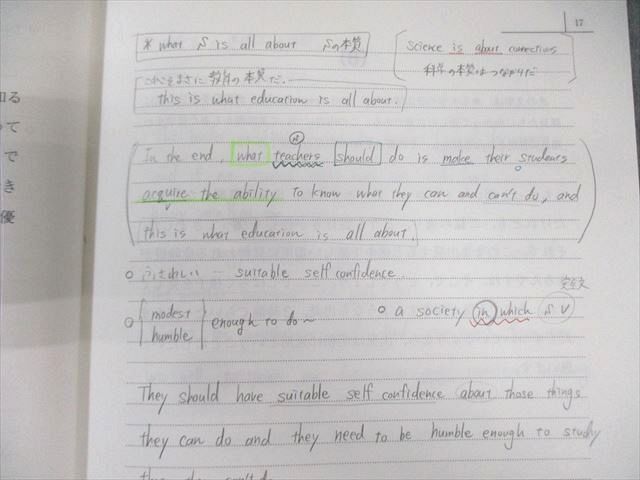 17
* what S is all about Sの本質
Science is about connections
科学の本質はつながりだ
これはまさに教育の本質だ.
this is what education is all about.
In the end, what teachers should do is make their students
acquire the ability to know what they can and can't do, and
this is what education is all about.
ふさわしい = suitable self confidence
完全文
modest
humble
enough to do ~
a society in which S V
They should have suitable self confidence about those things
they can do and they need to be humble enough to study
知る
って
で
き
優